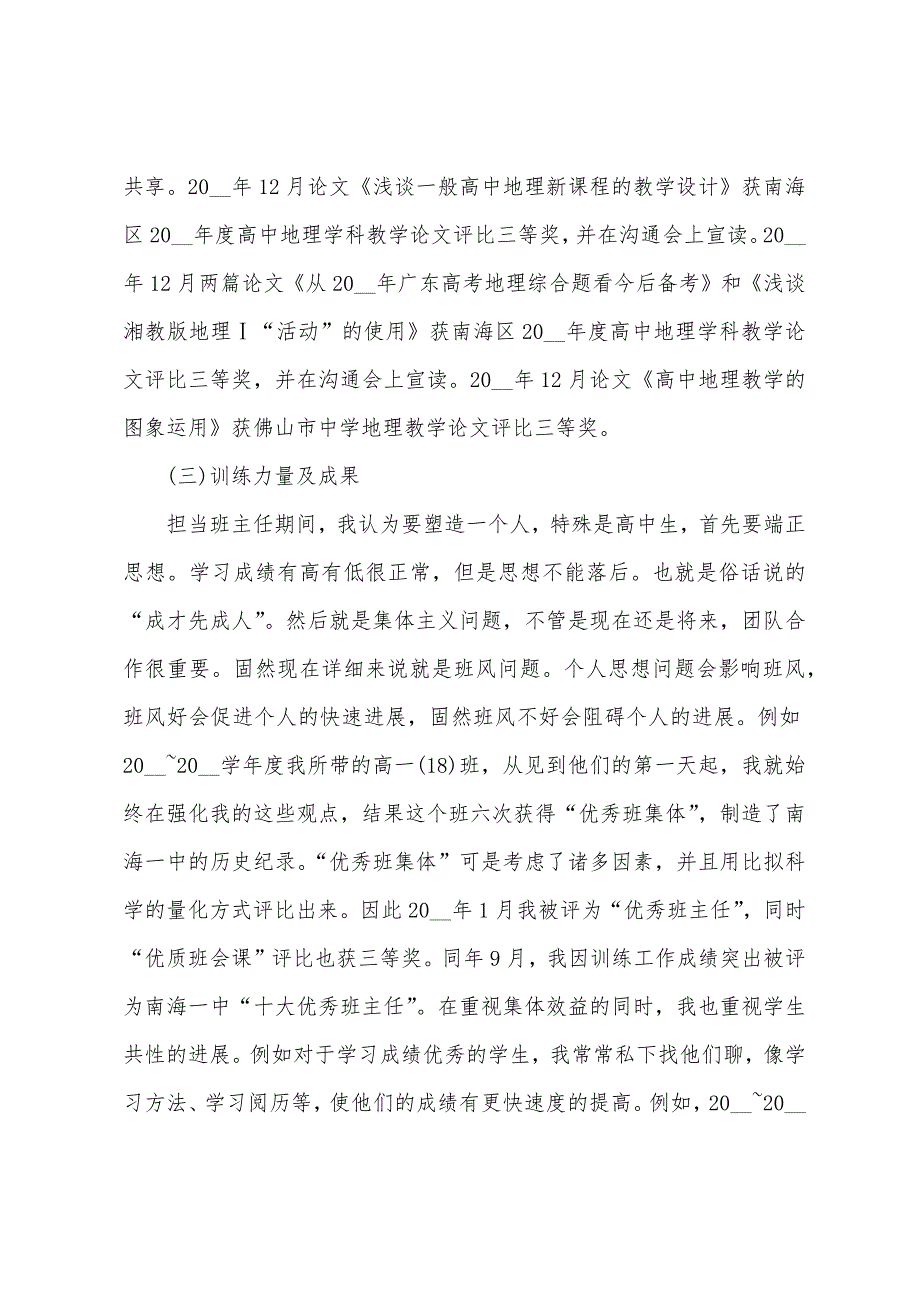 共享。20__年12月论文《浅谈一般高中地理新课程的教学设计》获南海
区20__年度高中地理学科教学论文评比三等奖,并在沟通会上宣读。20__
年12月两篇论文《从20__年广东高考地理综合题看今后备考》和《浅谈
湘教版地理Ⅰ“活动”的使用》获南海区20__年度高中地理学科教学论
文评比三等奖，并在沟通会上宣读。20__年12月论文《高中地理教学的
图象运用》获佛山市中学地理教学论文评比三等奖。
(三)训练力量及成果
担当班主任期间，我认为要塑造一个人，特殊是高中生，首先要端正
思想。学习成绩有高有低很正常，但是思想不能落后。也就是俗话说的
“成才先成人”。然后就是集体主义问题，不管是现在还是将来，团队合
作很重要。固然现在详细来说就是班风问题。个人思想问题会影响班风，
班风好会促进个人的快速进展，固然班风不好会阻碍个人的进展。例如
20__~20__学年度我所带的高一(18)班，从见到他们的第一天起，我就始
终在强化我的这些观点，结果这个班六次获得“优秀班集体”，制造了南
海一中的历史纪录。“优秀班集体”可是考虑了诸多因素，并且用比拟科
学的量化方式评比出来。因此20__年1月我被评为“优秀班主任”，同时
“优质班会课”评比也获三等奖。同年9月，我因训练工作成绩突出被评
为南海一中“十大优秀班主任”。在重视集体效益的同时，我也重视学生
共性的进展。例如对于学习成绩优秀的学生，我常常私下找他们聊，像学
习方法、学习阅历等，使他们的成绩有更快速度的提高。例如，20__~20__